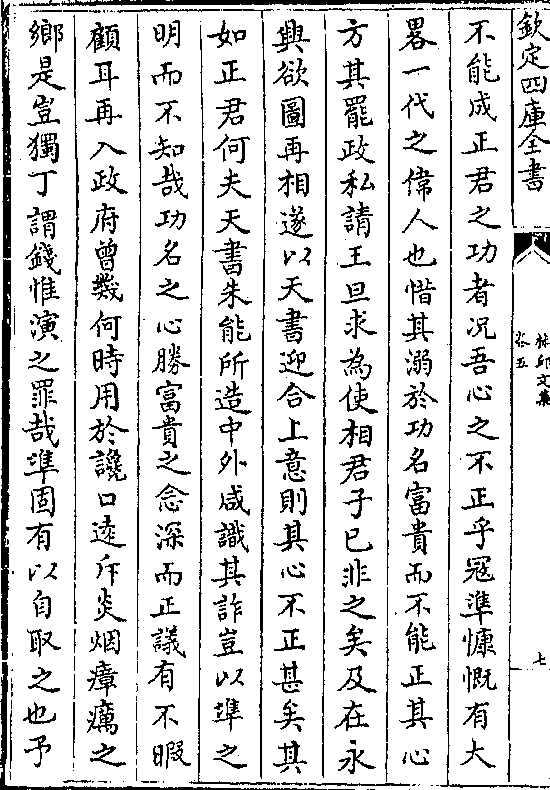 欽定四庫全書
椒邱文集
卷五
七
不能成正君之功者况吾心之不正乎冦準慷慨有大
畧一代之偉人也惜其溺於功名富貴而不能正其心
方其罷政私請王旦求為使相君子已非之矣及在永
興欲圖再相遂以天書迎合上意則其心不正甚矣其
如正君何夫天書朱能所造中外咸識其詐豈以準之
明而不知哉功名之心勝富貴之念深而正議有不暇
顧耳再入政府曾幾何時用於讒口逺斥炎烟瘴癘之
鄉是豈獨丁謂錢惟演之罪哉準固有以自取之也予